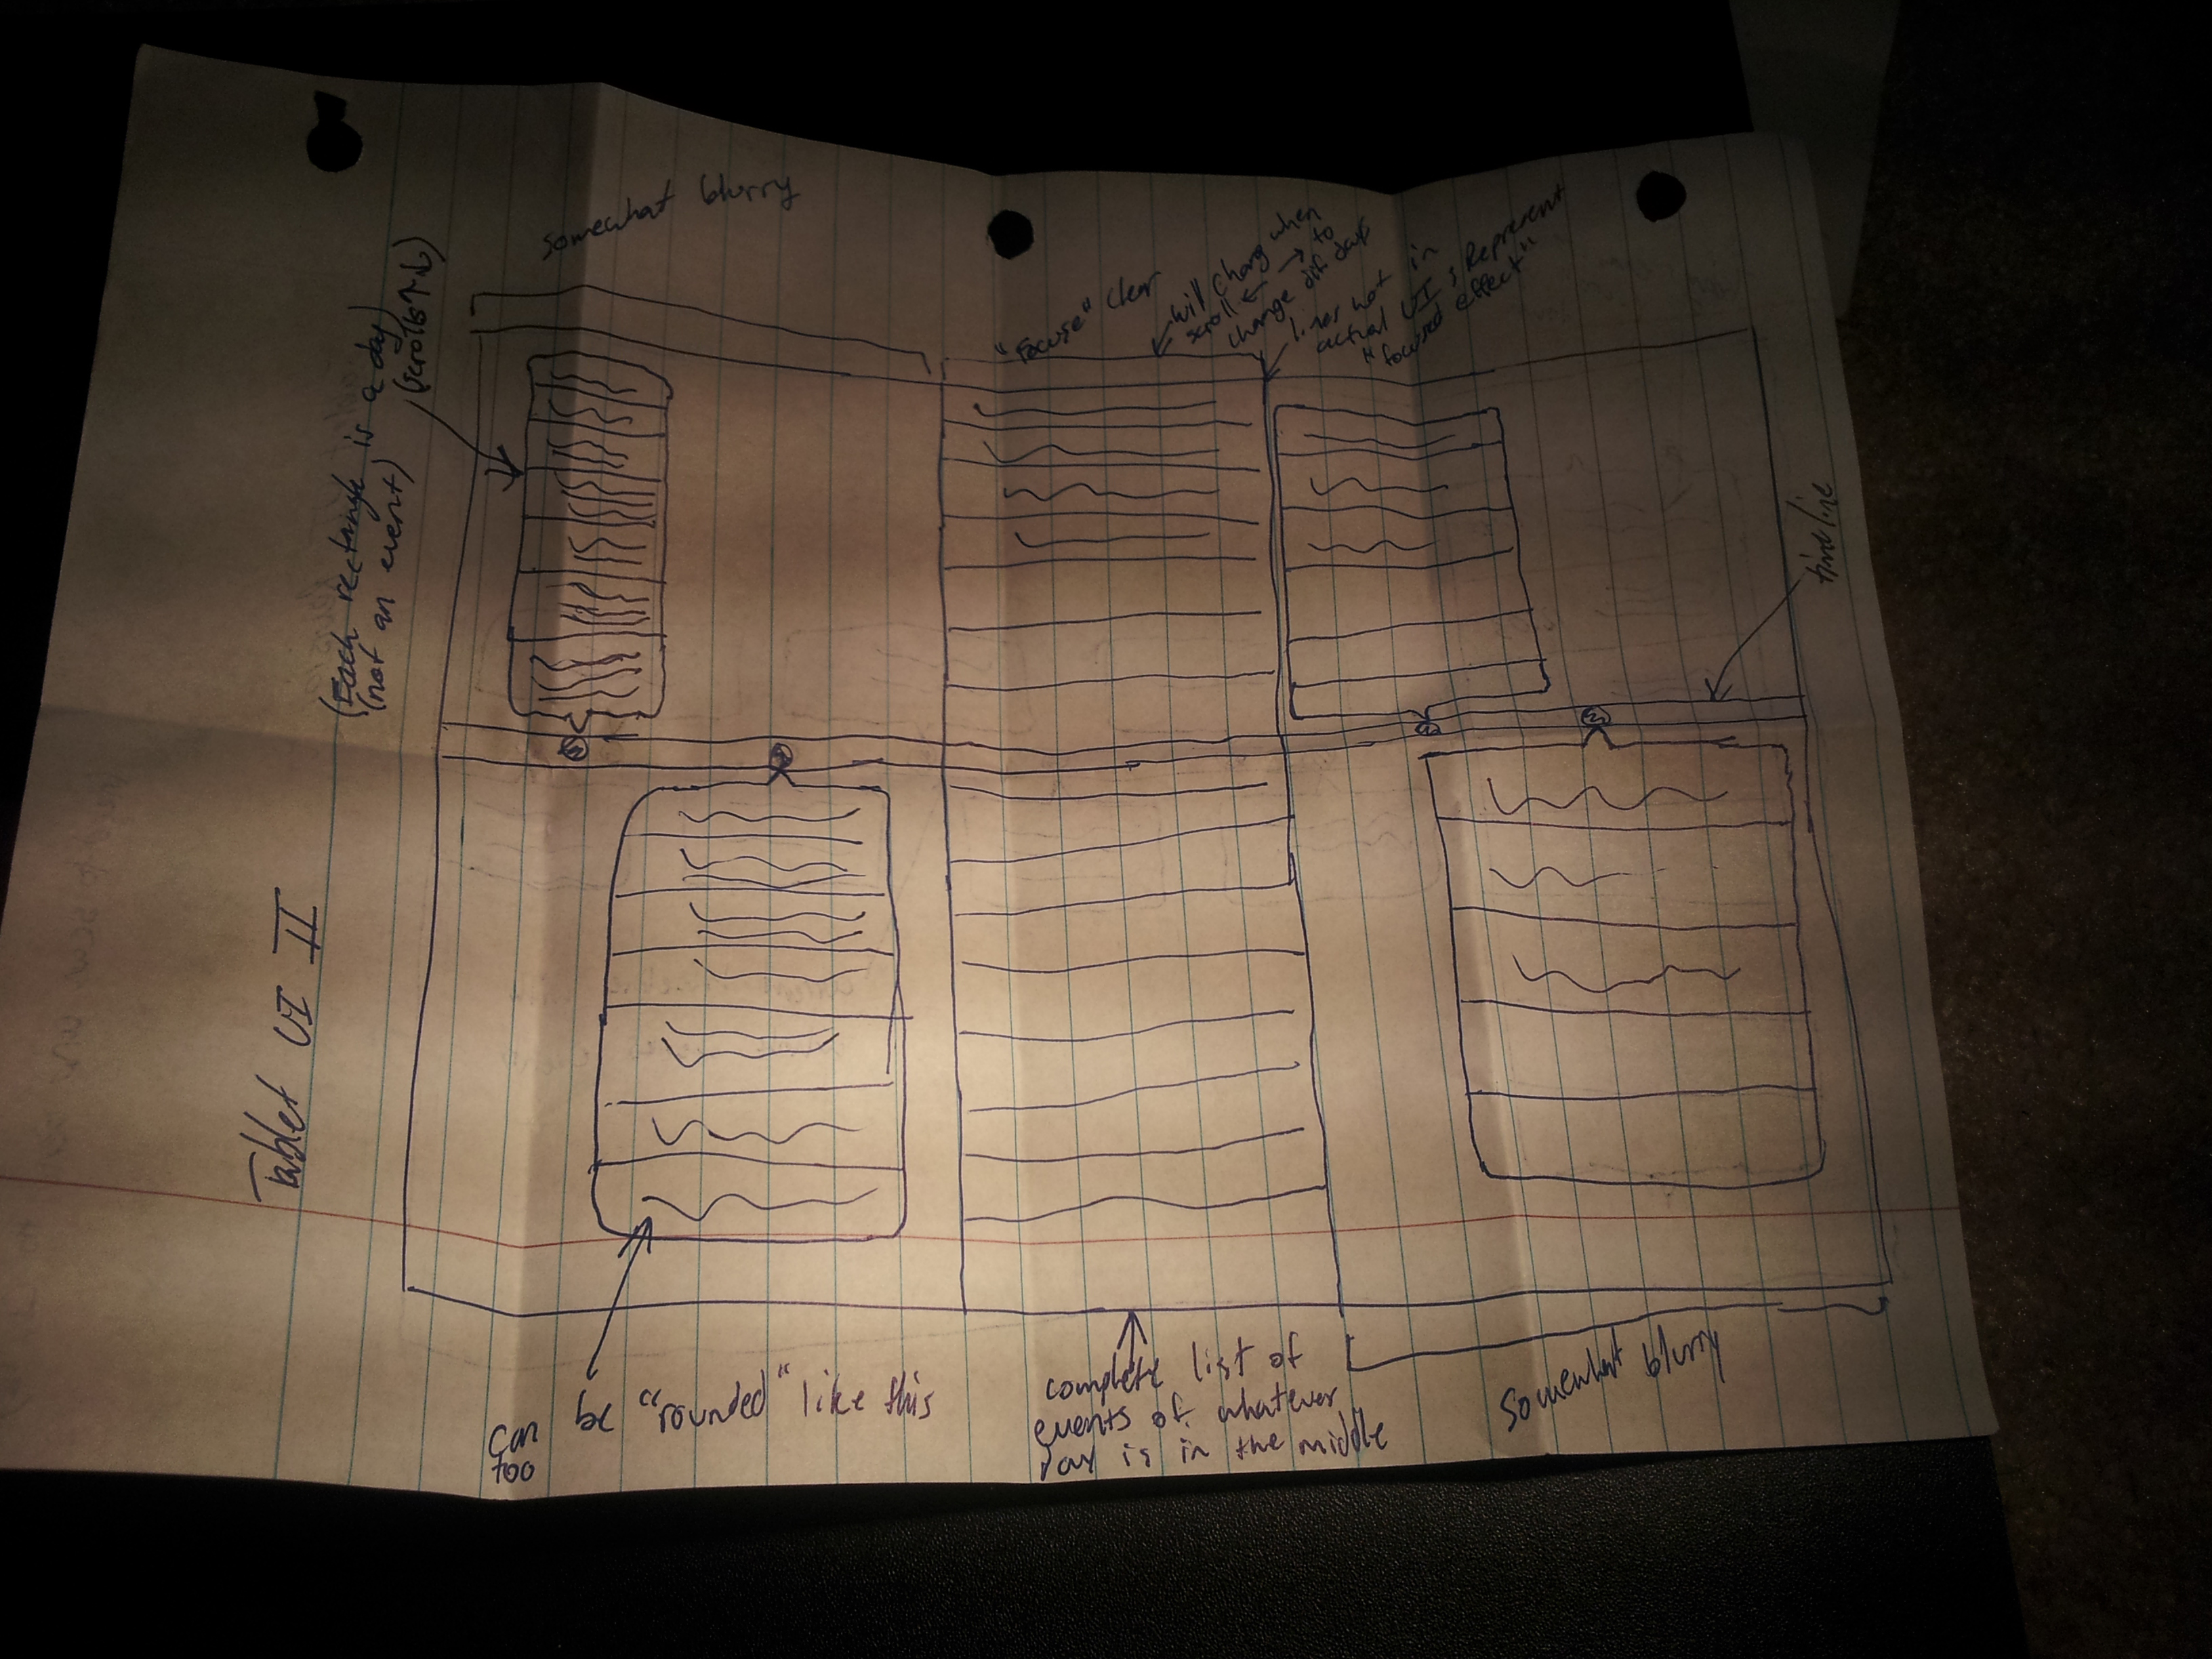 Tablet UI II
(Each rectangle is a day)
(not an event)
(scrolls ↑↓)
somewhat blurry
"Focuse" clear
will chang when
scroll ← → to
change dif days
lines not in
actual UI; Represent
"focused effect"
timeline
can be "rounded" like this
too
complete list of
events of whatever
day is in the middle
Somewhat blurry